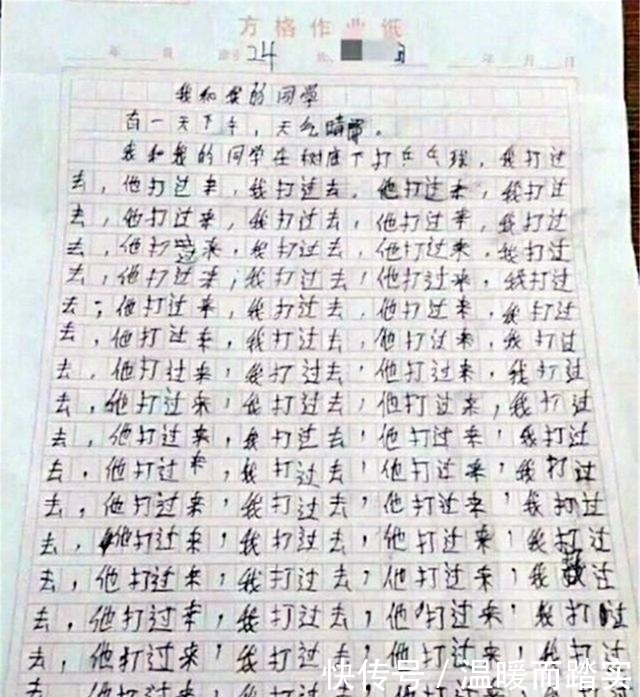 方格作业纸
年 月 24 年 月 日
我和我的同学
有一天下午，天气晴。
我和我的同学在树底下打乒乓球，我打过
去，他打过来，我打过去，他打过来，我打过
去，他打过来，我打过去，他打过来，我打过
去，他打过来，我打过去，他打过来，我打过
去，他打过来，我打过去，他打过来，我打过
去，他打过来，我打过去，他打过来，我打过
去，他打过来，我打过去，他打过来，我打过
去，他打过来，我打过去，他打过来，我打过
去，他打过来，我打过去，他打过来，我打过
去，他打过来，我打过去，他打过来，我打过
去，他打过来，我打过去，他打过来，我打过
去，他打过来，我打过去，他打过来，我打过
去，他打过来，我打过去，他打过来，我打过
去，他打过来，我打过去，他打过来，我过
去，他打过来，我打过去，他打过来，我打过
去，他打过来，我打过去，他打过来，我打过
去，他打过来，我打过
快传号 / 温暖而踏实